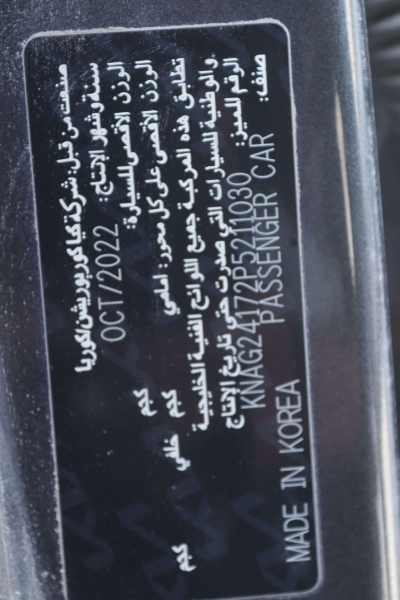 صنعت من قبل: شركة كيا كوربوريشن/كوريا
سنة وشهر الإنتاج: OCT/2022
الوزن الأقصى للسيارة: كجم
الوزن الأقصى على كل محور: أمامي كجم خلفي كجم
تطابق هذه المركبة جميع اللوائح الفنية الخليجية
والوطنية للسيارات التي صدرت حتى تاريخ الإنتاج
الرقم المميز: KNAG24172P5211030
صنف: PASSENGER CAR
MADE IN KOREA